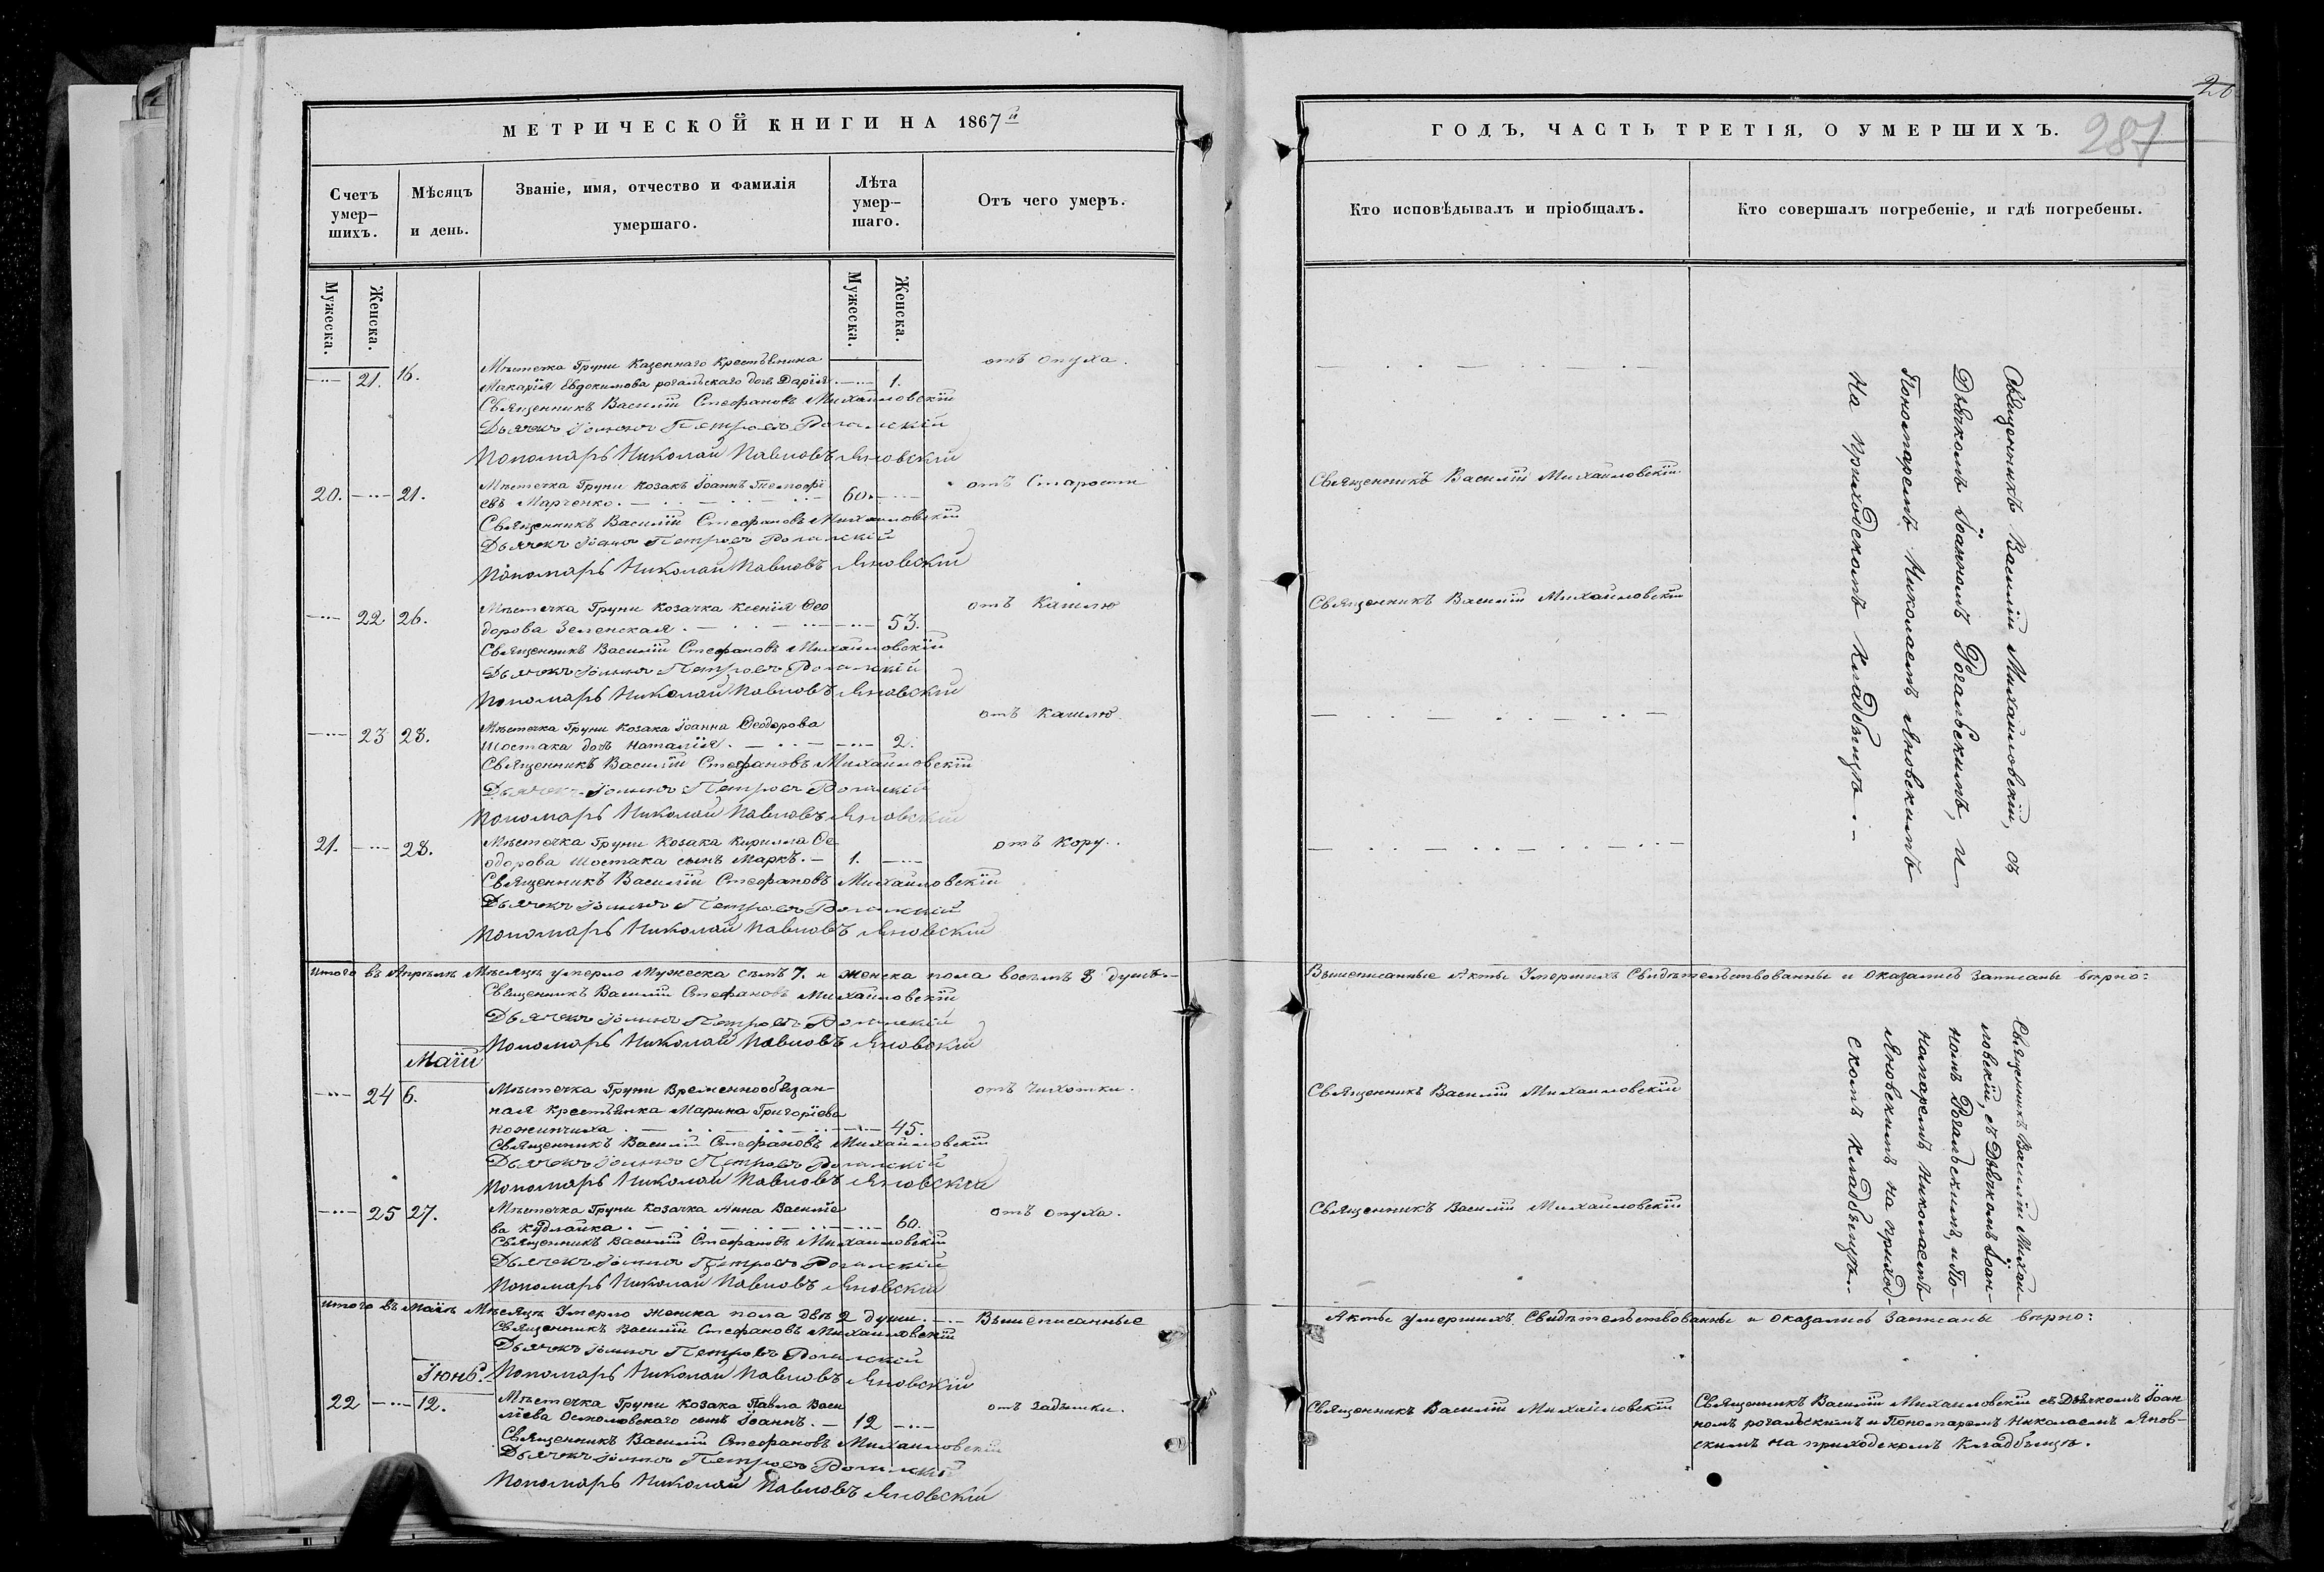 МЕТРИЧЕСКОЙ КНИГИ НА 1867й
Счетъ умер-шихъ.
Мѣсяцъ и день.
Званіе, имя, отчество и фамилія умершаго.
Лѣта умер-шаго.
Отъ чего умеръ.
Мужеска.
Женска.
Мужеска.
Женска.
21. 16. Мѣстечка Груни Казеннаго Крестьянина отъ опуха.
Макарія Евдокимова рогальскаго дочь Дарія 1.
Священникъ Василій Стефановъ Михайловскій
Дьячекъ Іоаннъ Петровъ Рогальскій
Пономарь Николай Павловъ Яновскій
20. 21. Мѣстечка Груни Козакъ Іоаннъ Тимофі 60. отъ Старости
евъ Марченко.
Священникъ Василій Стефановъ Михайловскій
Дьячекъ Іоаннъ Петровъ Рогальскій
Пономарь Николай Павловъ Яновскій
22 26. Мѣстечка Груни Козачка Ксенія Ѳео отъ Кашлю
дорова Зеленская. 53.
Священникъ Василій Стефановъ Михайловскій
Дьячекъ Іоаннъ Петровъ Рогальскій
Пономарь Николай Павловъ Яновскій
23 28. Мѣстечка Груни Козака Іоанна Ѳеодорова отъ Кашлю
Шостака дочь Наталія. 2.
Священникъ Василій Стефановъ Михайловскій
Дьячекъ Іоаннъ Петровъ Рогальскій
Пономарь Николай Павловъ Яновскій
21. 28. Мѣстечка Груни Козака Кирилла Ѳе отъ Кору.
одорова Шостака сынъ Маркъ. 1.
Священникъ Василій Стефановъ Михайловскій
Дьячекъ Іоаннъ Петровъ Рогальскій
Пономарь Николай Павловъ Яновскій
Итого въ Апрѣлѣ Мѣсяцѣ умерло Мужеска семь 7. и женска пола восемь 8 душъ.
Священникъ Василій Стефановъ Михайловскій
Дьячекъ Іоаннъ Петровъ Рогальскій
Пономарь Николай Павловъ Яновскій
Маій
24 6. Мѣстечка Груни Временнообязан- отъ чихотки.
ная крестьянка Марина Григоріева
45.
Священникъ Василій Стефановъ Михайловскій
Дьячекъ Іоаннъ Петровъ Рогальскій
Пономарь Николай Павловъ Яновскій
25 27. Мѣстечка Груни Козачка Анна Василіе отъ опуха.
ва Кудлайка. 60.
Священникъ Василій Стефановъ Михайловскій
Дьячекъ Іоаннъ Петровъ Рогальскій
Пономарь Николай Павловъ Яновскій
Итого въ Маіѣ Мѣсяцѣ Умерло женска пола двѣ 2 души. Вышеписанные
Священникъ Василій Стефановъ Михайловскій
Дьячекъ Іоаннъ Петровъ Рогальскій
Іюнь. Пономарь Николай Павловъ Яновскій
22 12. Мѣстечка Груни Козака Павла Васи отъ задышки.
ліева Осмоловскаго сынъ Іоаннъ. 12
Священникъ Василій Стефановъ Михайловскій
Дьячекъ Іоаннъ Петровъ Рогальскій
Пономарь Николай Павловъ Яновскій
287
ГОДЪ, ЧАСТЬ ТРЕТІЯ, О УМЕРШИХЪ.
Кто исповѣдывалъ и пріобщалъ.
Кто совершалъ погребеніе, и гдѣ погребены.
Священникъ Василій Михайловскій
Священникъ Василій Михайловскій
Священникъ Василій Михайловскій, съ
Дьячкомъ Іоанномъ Рогальскимъ, и
Пономаремъ Николаемъ Яновскимъ
На приходскомъ Кладбищѣ.
Вышеписанные Акты Умершихъ Свидѣтельствованны и оказались записаны вѣрно:
Священникъ Василій Михайловскій
Священникъ Василій Михайловскій
Священникъ Василій Михай
ловскій, съ Дьячкомъ Іоан-
номъ Рогальскимъ, и По-
номаремъ Николаемъ
Яновскимъ на приход-
скомъ кладбищѣ.
Акты умершихъ Свидѣтельствованны и оказались записаны вѣрно:
Священникъ Василій Михайловскій
Священникъ Василій Михайловскій съ Дьячкомъ Іоан
номъ рогальскимъ и Пономаремъ Николаемъ Янов-
скимъ на приходскомъ Кладбищѣ.